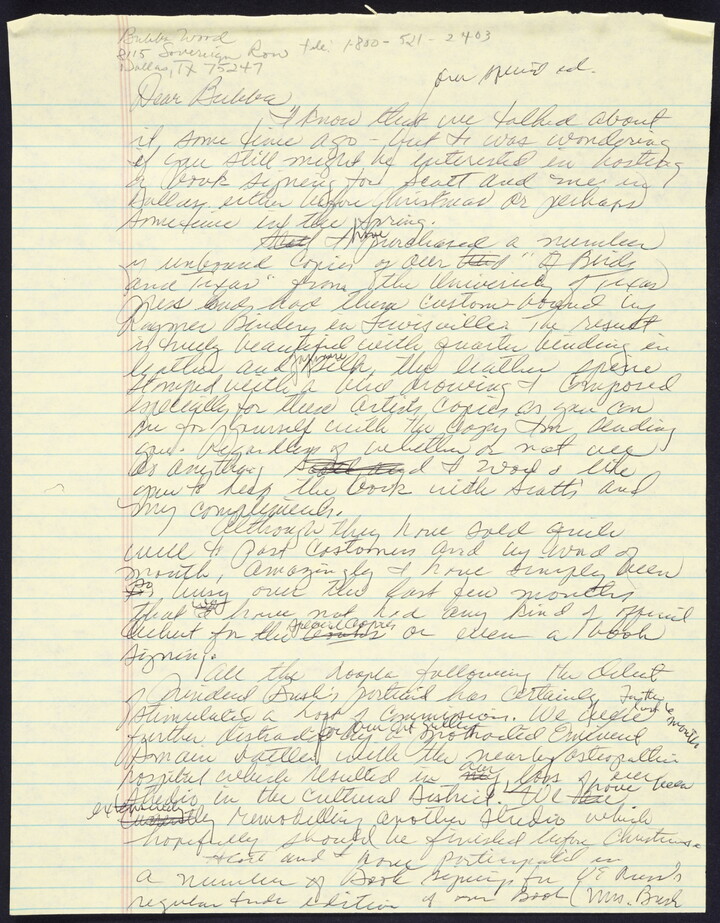 Bubba Wood
8115 Sovereign Row tele: 1-800-521-2403
Dallas, TX 75247
over special ed.
Dear Bubba
I know that we talked about
it some time ago - but I was wondering
if you still might be interested in hosting
a book signing for Scott and me in
Dallas either before Christmas or perhaps
sometime in the spring.
that I have purchased a number
of unbound copies of our "Of Birds
and Texas" from the University of Texas
Press and had them custom-bound by
Bindery in Lewisville. The result
is truly beautiful with quarter binding in
leather and silk, the leather spine
stamped with a bird drawing I composed
especially for these artists copies as you can
see for yourself with the copy I'm sending
you. Regardless of whether or not we
do anything and I would like
you to keep the book with Scott's and
my compliments.
Although they have sold quite
well to past customers and by word of
mouth, amazingly I have simply been
so busy over the last few months
that we have not had any kind of official
debut for the special copies or even a book
signing.
All the hoopla following the debut
of President Bush's portrait has certainly
stimulated a host of commissions. We were
further distracted by our protracted eminent
domain battle with the nearby osteopathic
hospital which resulted in our loss of our
studio in the Cultural District. We have been
extensively remodelling another studio which
hopefully should be finished before Christmas.
Scott and I have participated in
a number of book signings for UT Press's
regular trade edition of our book (Mrs. Bush